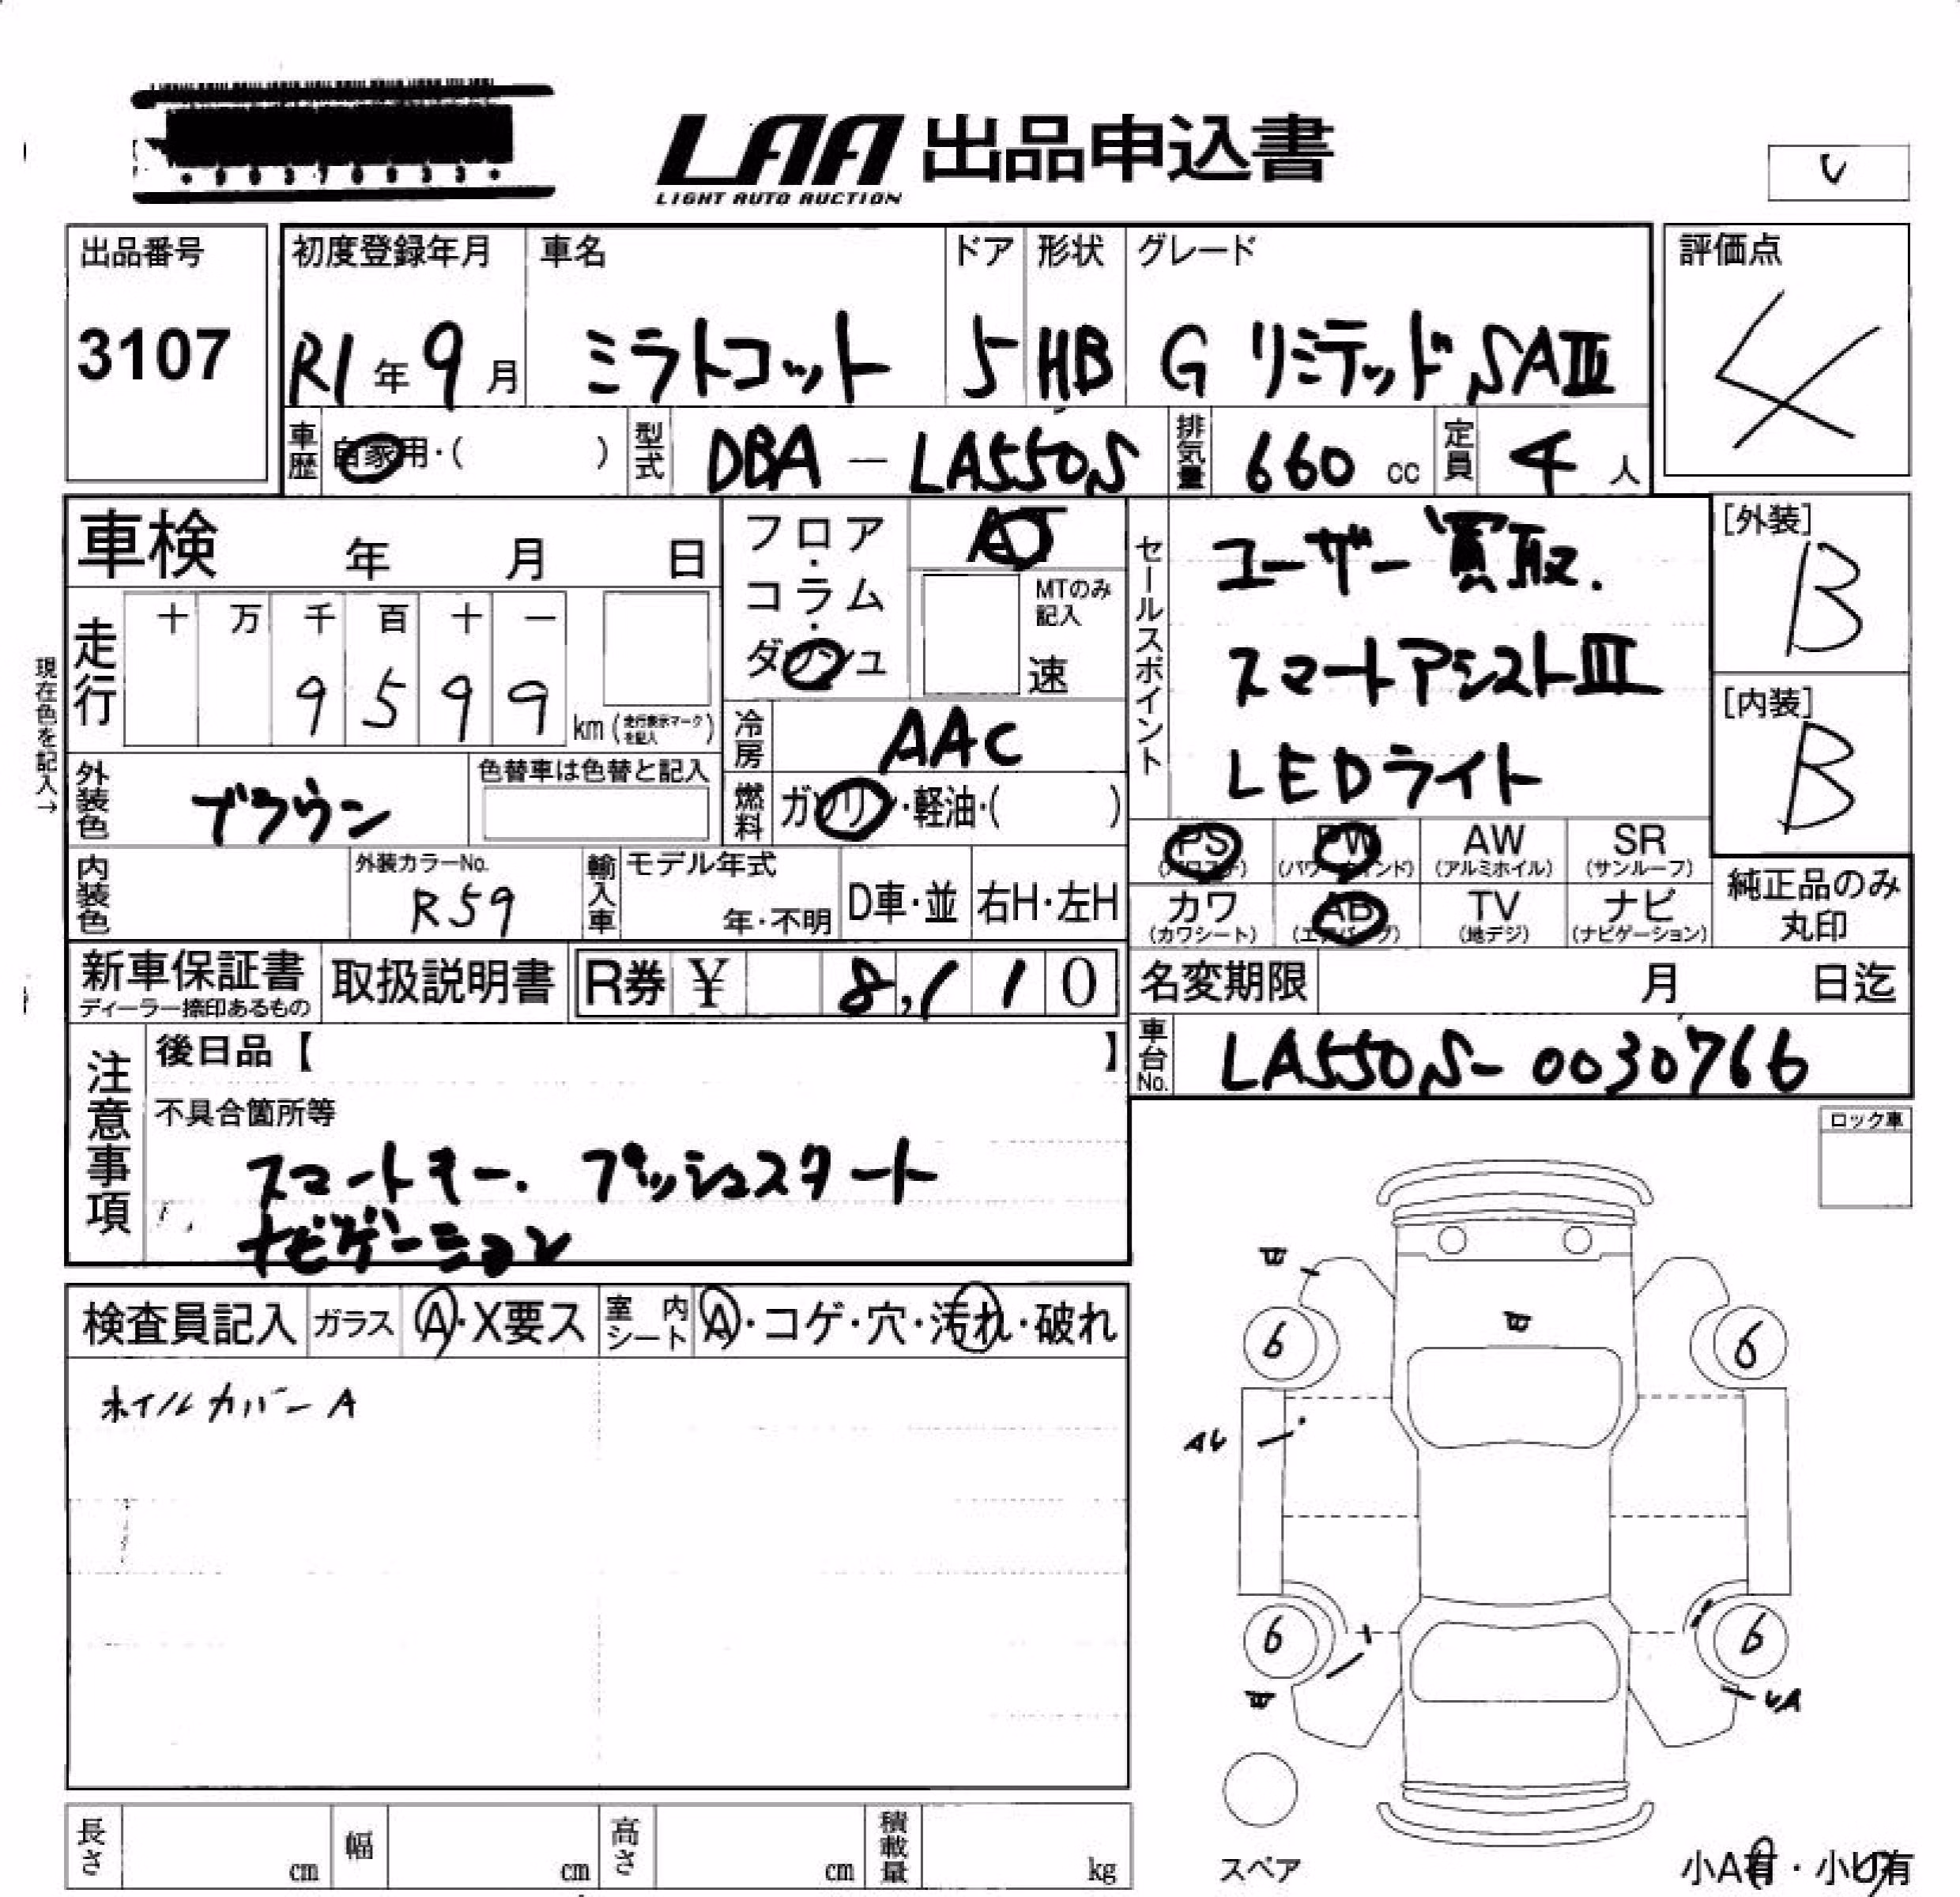 LAA 出品申込書
LIGHT AUTO AUCTION
出品番号
3107
初度登録年月 車名 ドア 形状 グレード
R1年9月 ミラトコット 5 HB G リミテッド SAIII
評価点
4
車歴 自家用・( ) 型式 DBA－LA550S 排気量 660 cc 定員 4 人
車検 年 月 日
フロア・コラム・ダッシュ
AT
MTのみ記入
速
セールスポイント
ユーザー買取.
スマートアシストIII
LEDライト
[外装]
B
[内装]
B
現在色を記入→
走行 十 万 千 百 十 一
9 5 9 9 km (走行表示マークを記入)
冷房 AAC
外装色 ブラウン 色替車は色替と記入
燃料 ガソリン・軽油・( )
PS (パワステ) PW (パワーウインド) AW (アルミホイル) SR (サンルーフ)
カワ (カワシート) AB (エアバッグ) TV (地デジ) ナビ (ナビゲーション)
純正品のみ丸印
内装色 外装カラーNo. R59 輸入車 モデル年式 年・不明 D車・並 右H・左H
新車保証書 ディーラー捺印あるもの 取扱説明書 R券 ¥ 8,110
名変期限 月 日迄
車台No. LA550S-0030766
注意事項
後日品【 】
不具合箇所等
スマートキー. プッシュスタート
ナビゲーション
ロック車
検査員記入 ガラス A・X要ス 室内シート A・コゲ・穴・汚れ・破れ
ホイルカバーA
6 6
AU
6 6
UA
スペア
小A有・小U有
長さ cm 幅 cm 高さ cm 積載量 kg